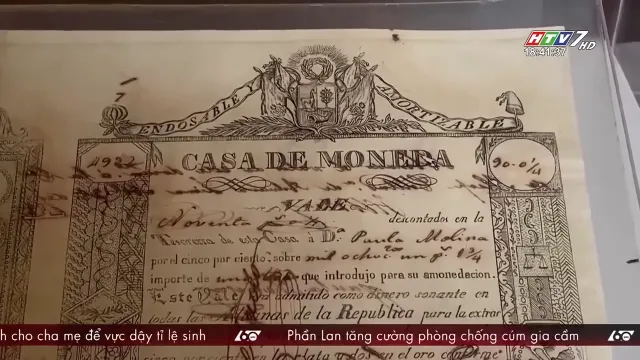 HTV7 HD
18:41:37
ENDOSABLE Y AMORTIZABLE
4922
CASA DE MONEDA
90.0¼
VALE
Noventa descontados en la
Tesoreria de esta Casa á Dª Paula Molina
por el cinco por ciento: sobre mil ocho
importe de que introdujo para su amonedacion.
Este Vale admitido como dinero sonante en
todas las de la Republica para la
la Plata y dos en el oro
h cho cha mẹ để vực dậy tỉ lệ sinh
60
Phần Lan tăng cường phòng chống cúm gia cầm
60